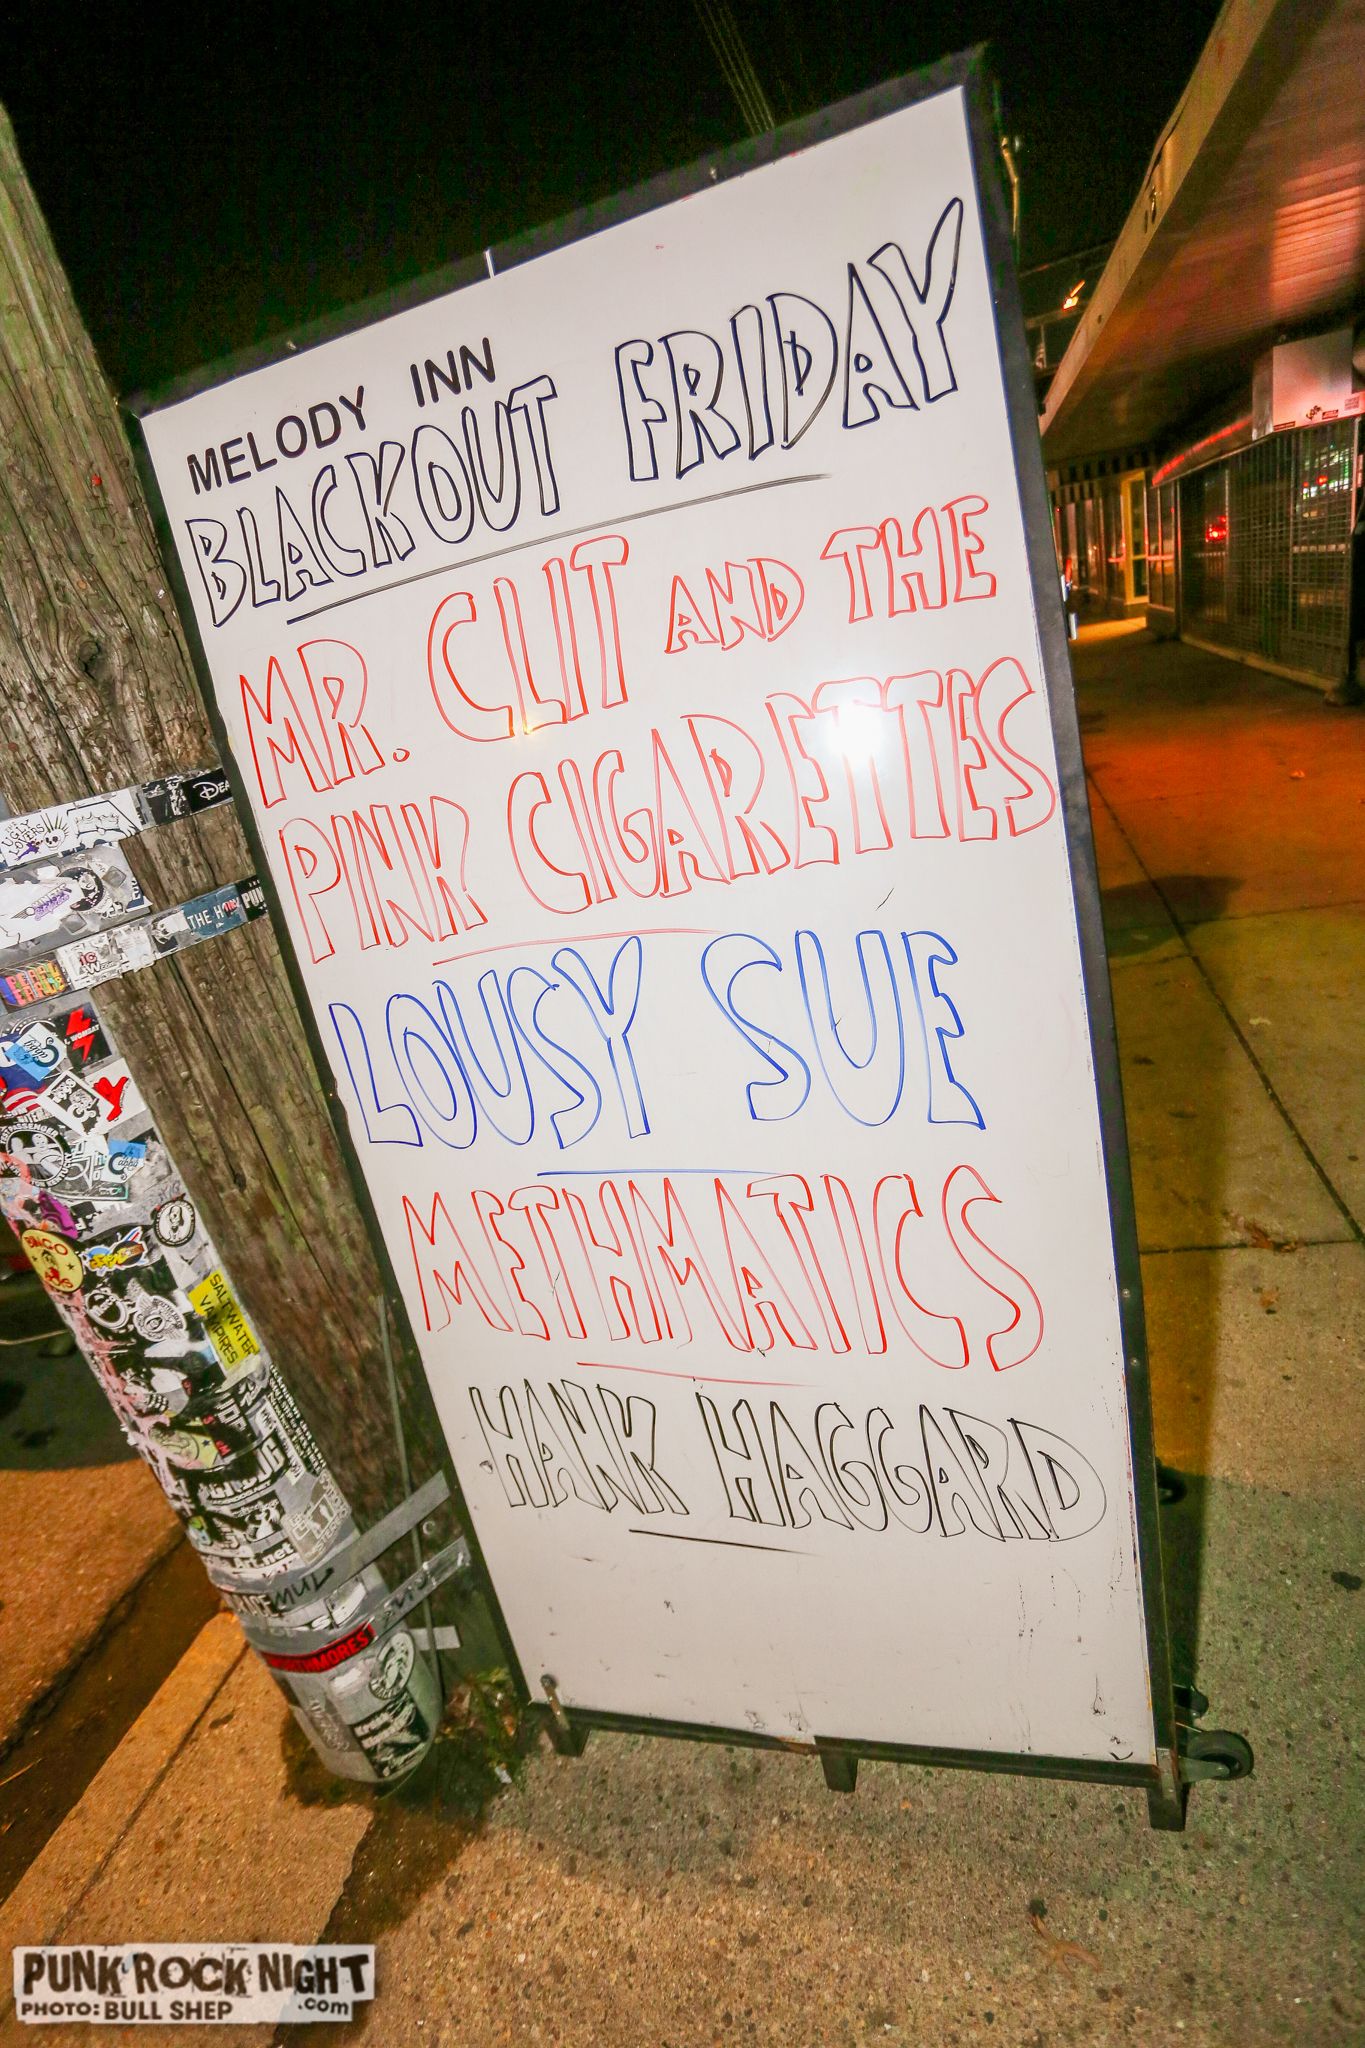 MELODY INN
BLACKOUT FRIDAY
MR. CLIT AND THE
PINK CIGARETTES
LOUSY SUE
METHMATICS
HANK HAGGARD
UGLY
LOVERS
THE
WOMBAT
BINGO
SALTWATER
VAMPIRES
PUNK ROCK NIGHT
.com
PHOTO: BULL SHEP